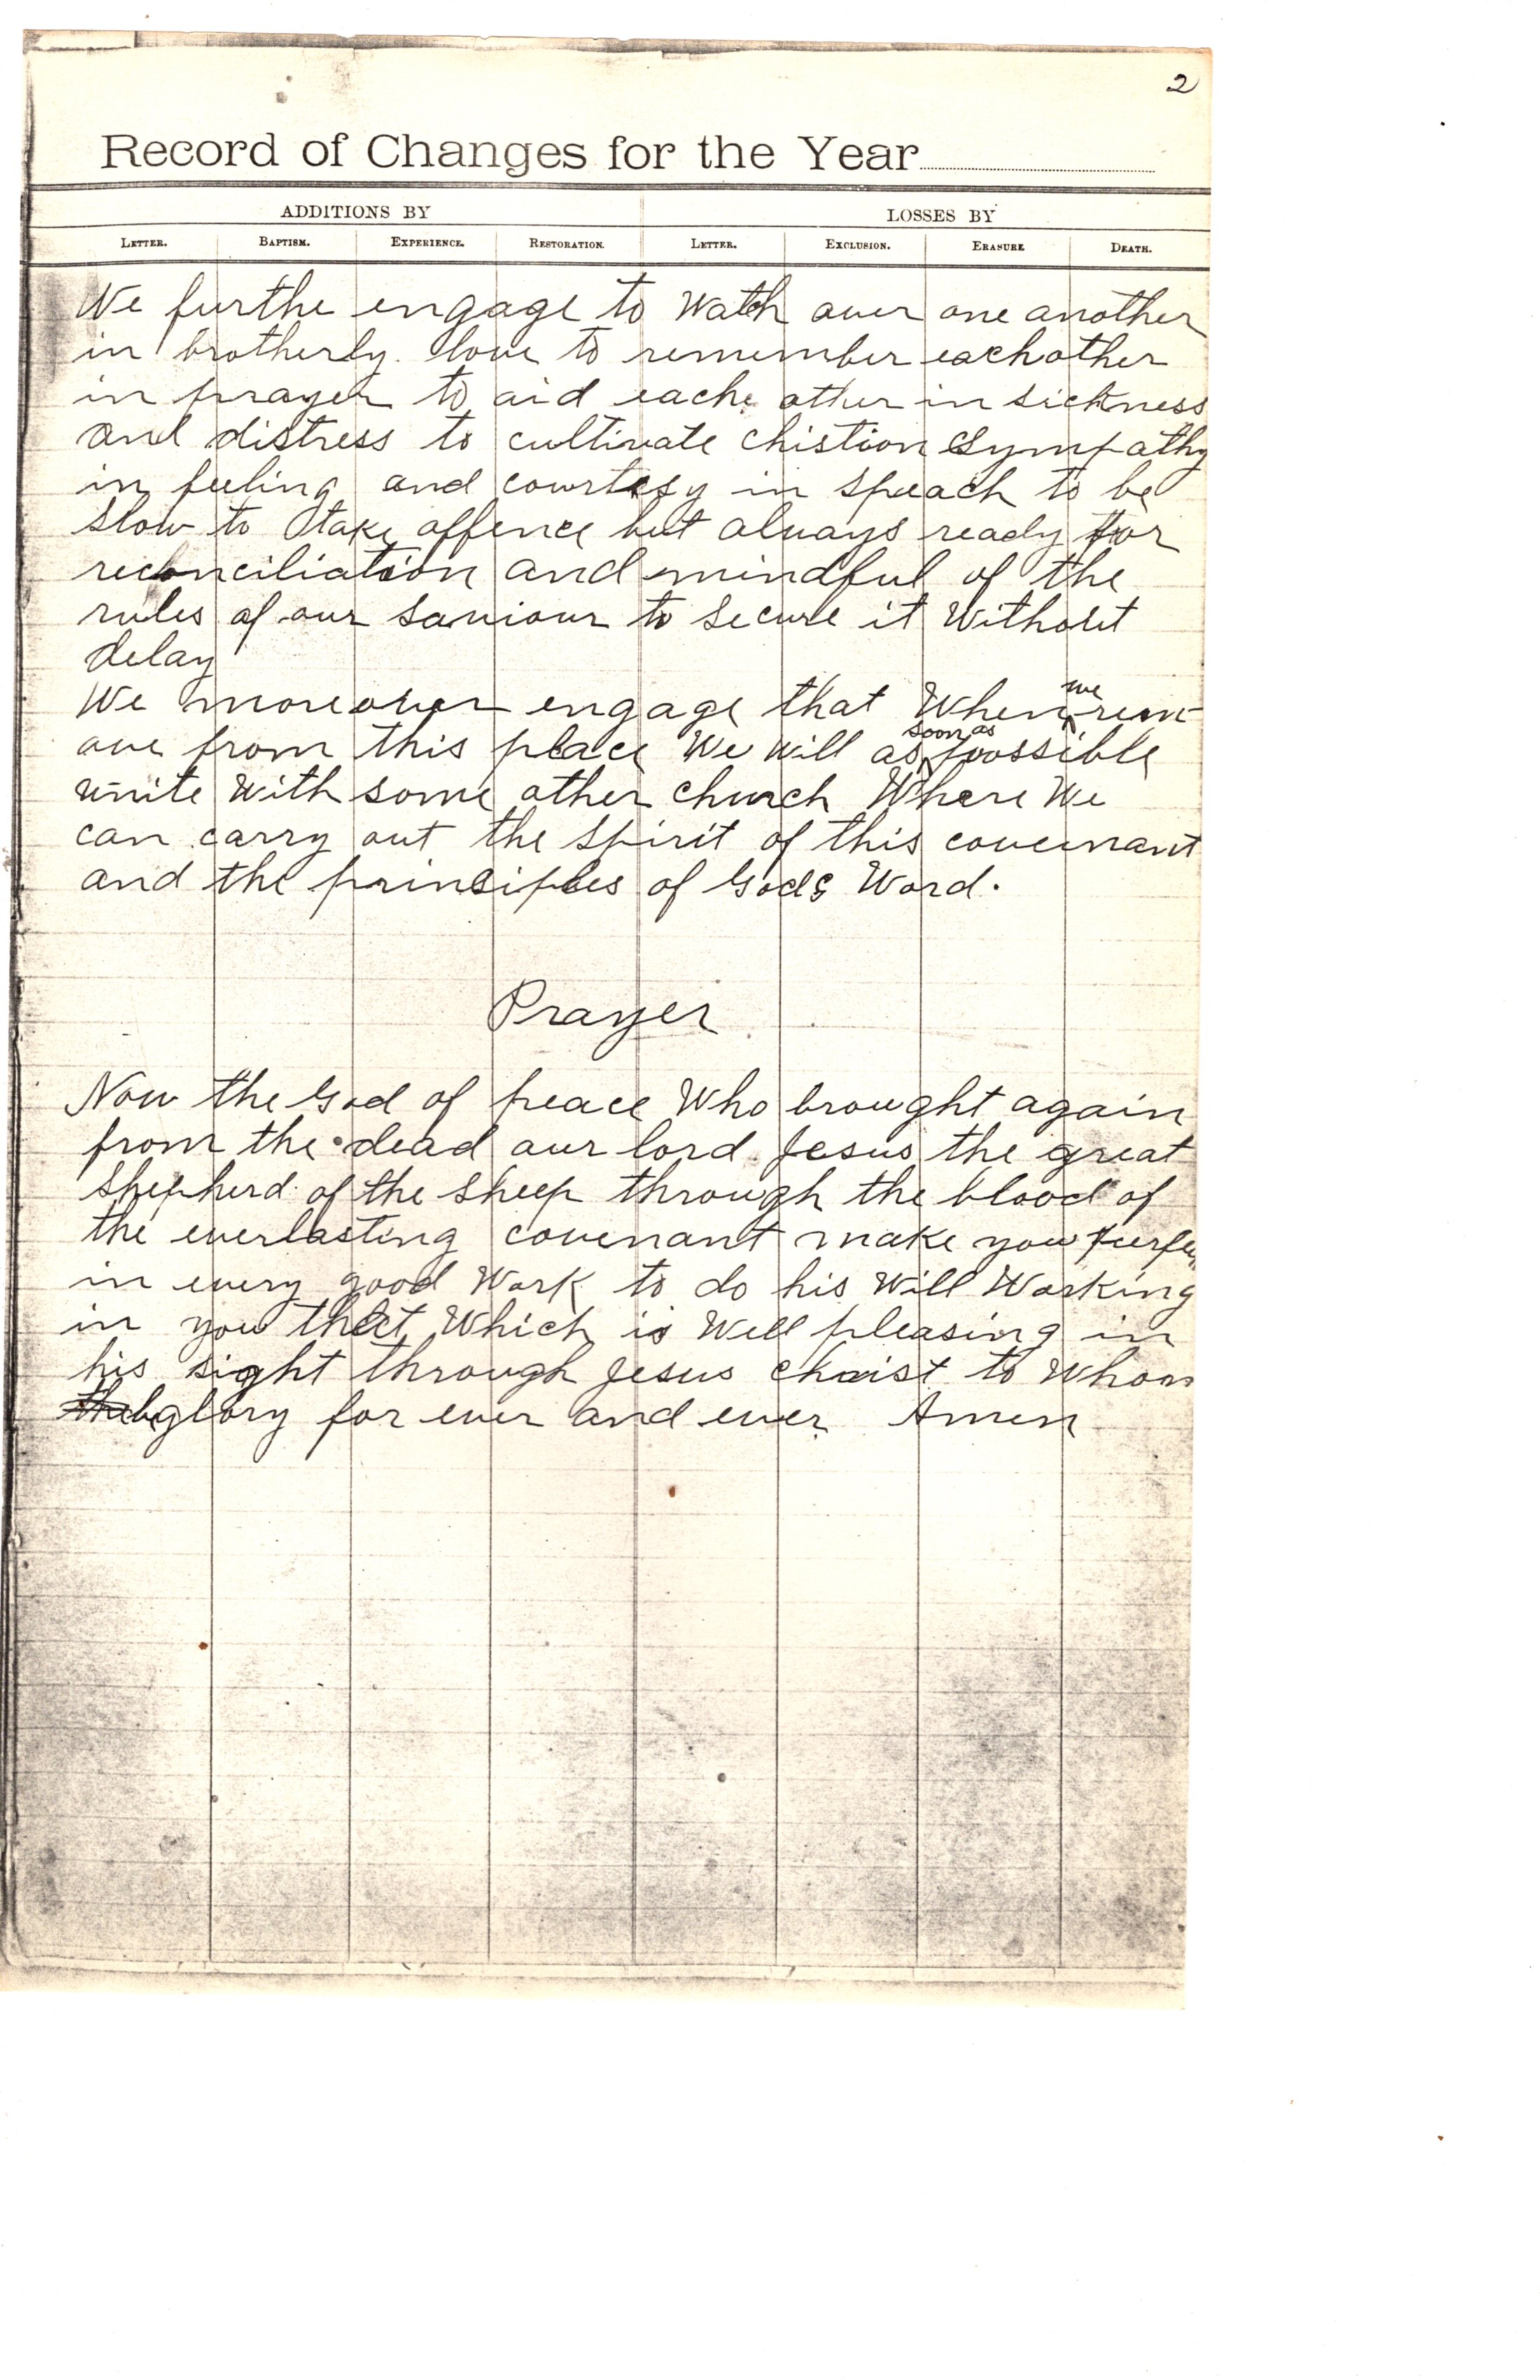 2
Record of Changes for the Year
ADDITIONS BY LOSSES BY
LETTER. BAPTISM. EXPERIENCE. RESTORATION. LETTER. EXCLUSION. ERASURE DEATH.
We furthe engage to Watch over one another
in brotherly love to remember eachother
in prayer to aid each other in sickness
and distress to cultivate chistion sympathy
in feeling and courtesy in speach to be
slow to take offence but always ready for
reconciliation and mindful of the
rules of our saviour to secure it Without
delay
We moreover engage that When we rem-
ove from this place We will as soon as possible
unite With some other church Where We
can carry out the spirit of this covenant
and the principles of Gods Word.
Prayer
Now the God of peace Who brought again
from the dead our lord Jesus the great
shepherd of the sheep through the blood of
the everlasting covenant make you perfec
in every good Work to do his Will Working
in you that Which is Well pleasing in
his sight through Jesus christ to Whom
be glory for ever and ever Amen